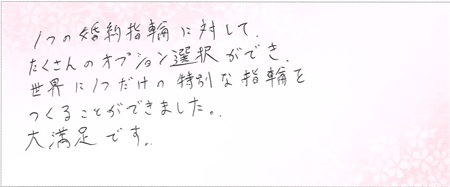 1つの婚約指輪に対して、
たくさんのオプション選択ができ、
世界に1つだけの特別な指輪を
つくることができました。
大満足です。